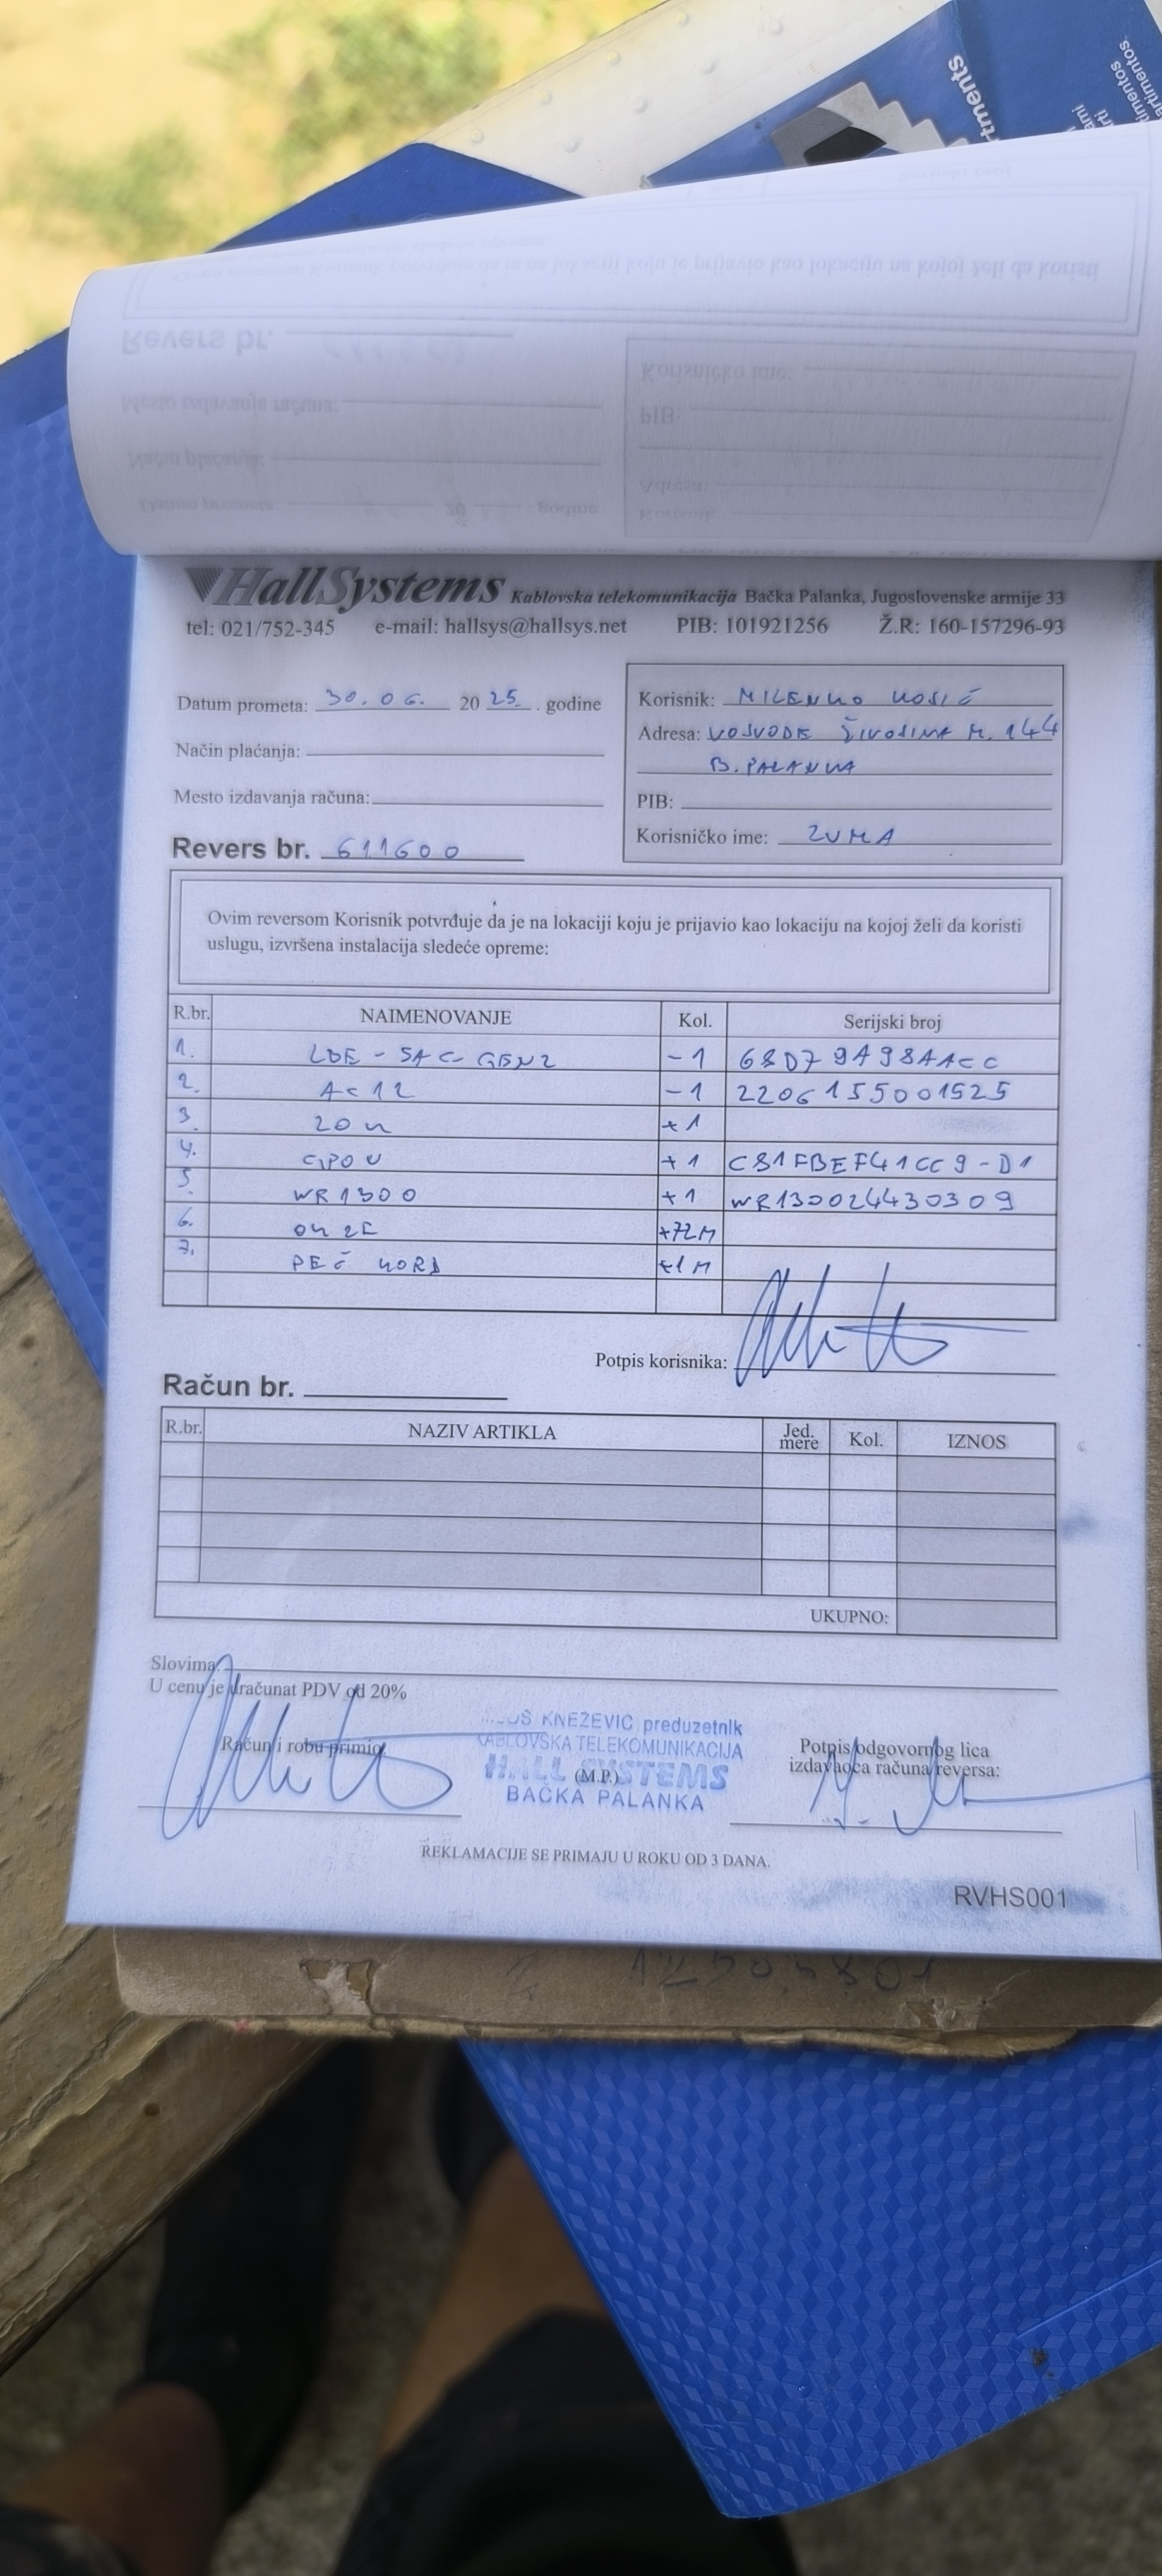 HallSystems Kablovska telekomunikacija Bačka Palanka, Jugoslovenske armije 33
tel: 021/752-345 e-mail: hallsys@hallsys.net PIB: 101921256 Ž.R: 160-157296-93
Datum prometa: 30.06. 20 25. godine
Način plaćanja:
Mesto izdavanja računa:
Revers br. 611600
Korisnik: MILENKO KOSIĆ
Adresa: VOJVODE ŽIVOJINA M. 144
B. PALANKA
PIB:
Korisničko ime: ZUMA
Ovim reversom Korisnik potvrđuje da je na lokaciji koju je prijavio kao lokaciju na kojoj želi da koristi
uslugu, izvršena instalacija sledeće opreme:
R.br. NAIMENOVANJE Kol. Serijski broj
1. LBE-5AC-GEN2 -1 68D79A98AACC
2. AC12 -1 2206155001525
3. ZOK +1
4. GPON +1 C81FBEF41CC9-D1
5. WR1300 +1 WR130024430309
6. OK 2C +72M
7. PEČ KORD +1M
Potpis korisnika:
Račun br.
R.br. NAZIV ARTIKLA Jed. mere Kol. IZNOS
UKUPNO:
Slovima:
U cenu je uračunat PDV od 20%
Račun i robu primio
KNEŽEVIĆ preduzetnik
KABLOVSKA TELEKOMUNIKACIJA
HALL SYSTEMS
(M.P.)
BAČKA PALANKA
Potpis odgovornog lica
izdavaoca računa/reversa:
REKLAMACIJE SE PRIMAJU U ROKU OD 3 DANA.
RVHS001